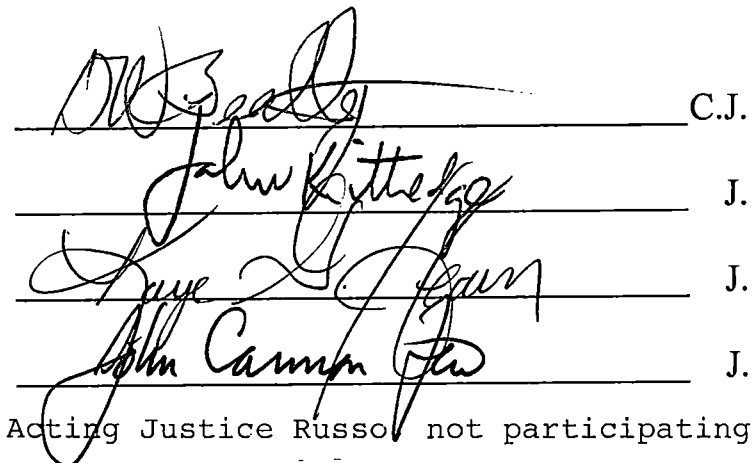 DW Beatty C.J.
John Kittredge J.
Kaye G. Hearn J.
John Cannon Few J.
Acting Justice Russo, not participating